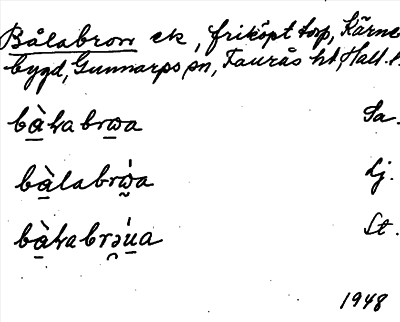 Bålabron ek, friköpt torp, Kärne
bygd, Gunnarps sn, Faurås hd, Hall. l.
bà̱ɫabrꞷa Sa.
bà̱labrꞷ̀a Lj.
bà̱ɫabrə̯ùa St.
1948